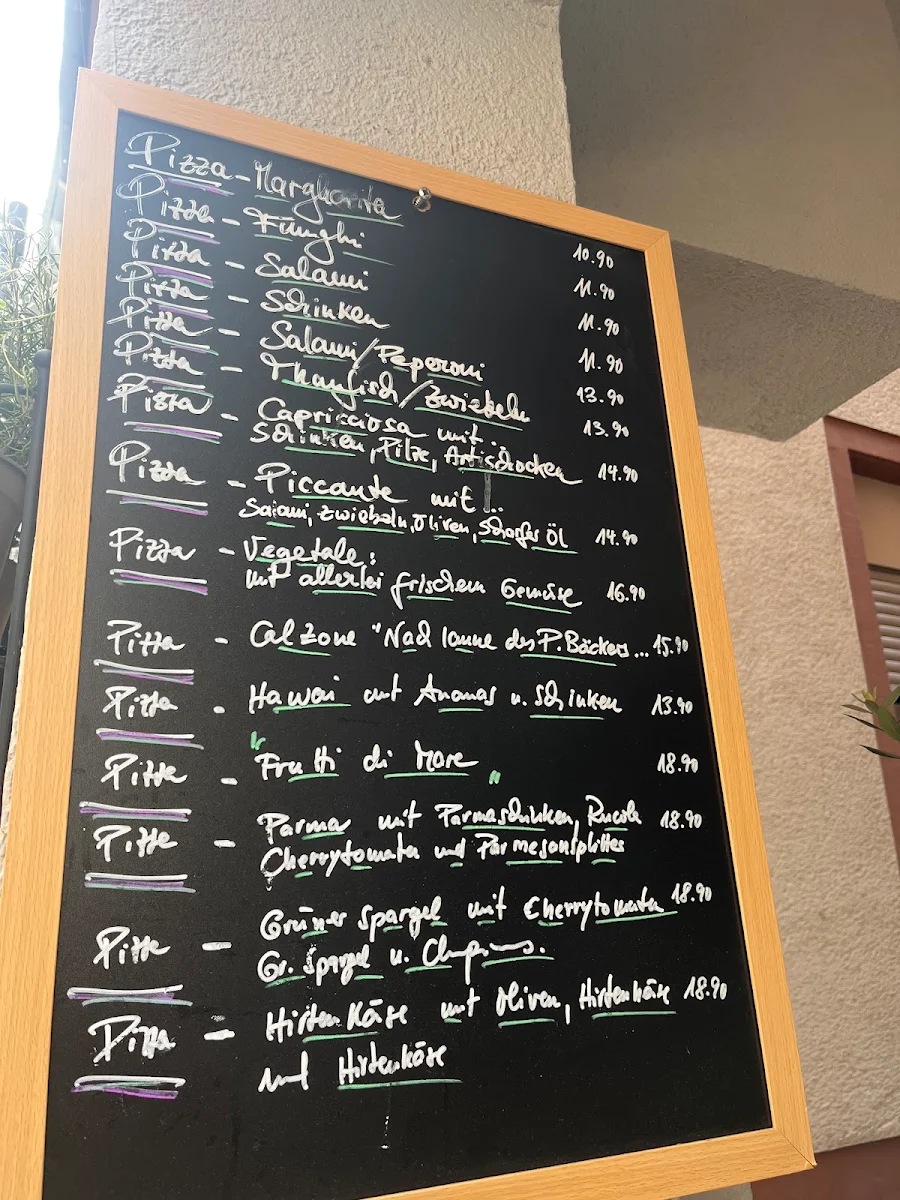 Pizza - Margharita 10.90
Pizza - Funghi 11.90
Pizza - Salami 11.90
Pizza - Schinken 11.90
Pizza - Salami/Peperoni 13.90
Pizza - Thunfisch/Zwiebeln 13.90
Pizza - Capricciosa mit..
Schinken, Pilze, Artischocken 14.90
Pizza - Piccante mit..
Salami, Zwiebeln, Oliven, Scharfes Öl 14.90
Pizza - Vegetale:
mit allerlei frischem Gemüse 16.90
Pizza - Calzone "Nach laune des P. Bäckers... 15.90
Pizza - Hawai mit Ananas u. Schinken 13.90
Pizza - "Frutti di Mare" 18.90
Pizza - Parma mit Parmaschinken, Rucola 18.90
Cherrytomaten und Parmesansplitter
Pizza - Grüner Spargel mit Cherrytomaten 18.90
Gr. Spargel u.
Pizza - Hirtenkäse mit Oliven, Hirtenkäse 18.90
und Hirtenkäse